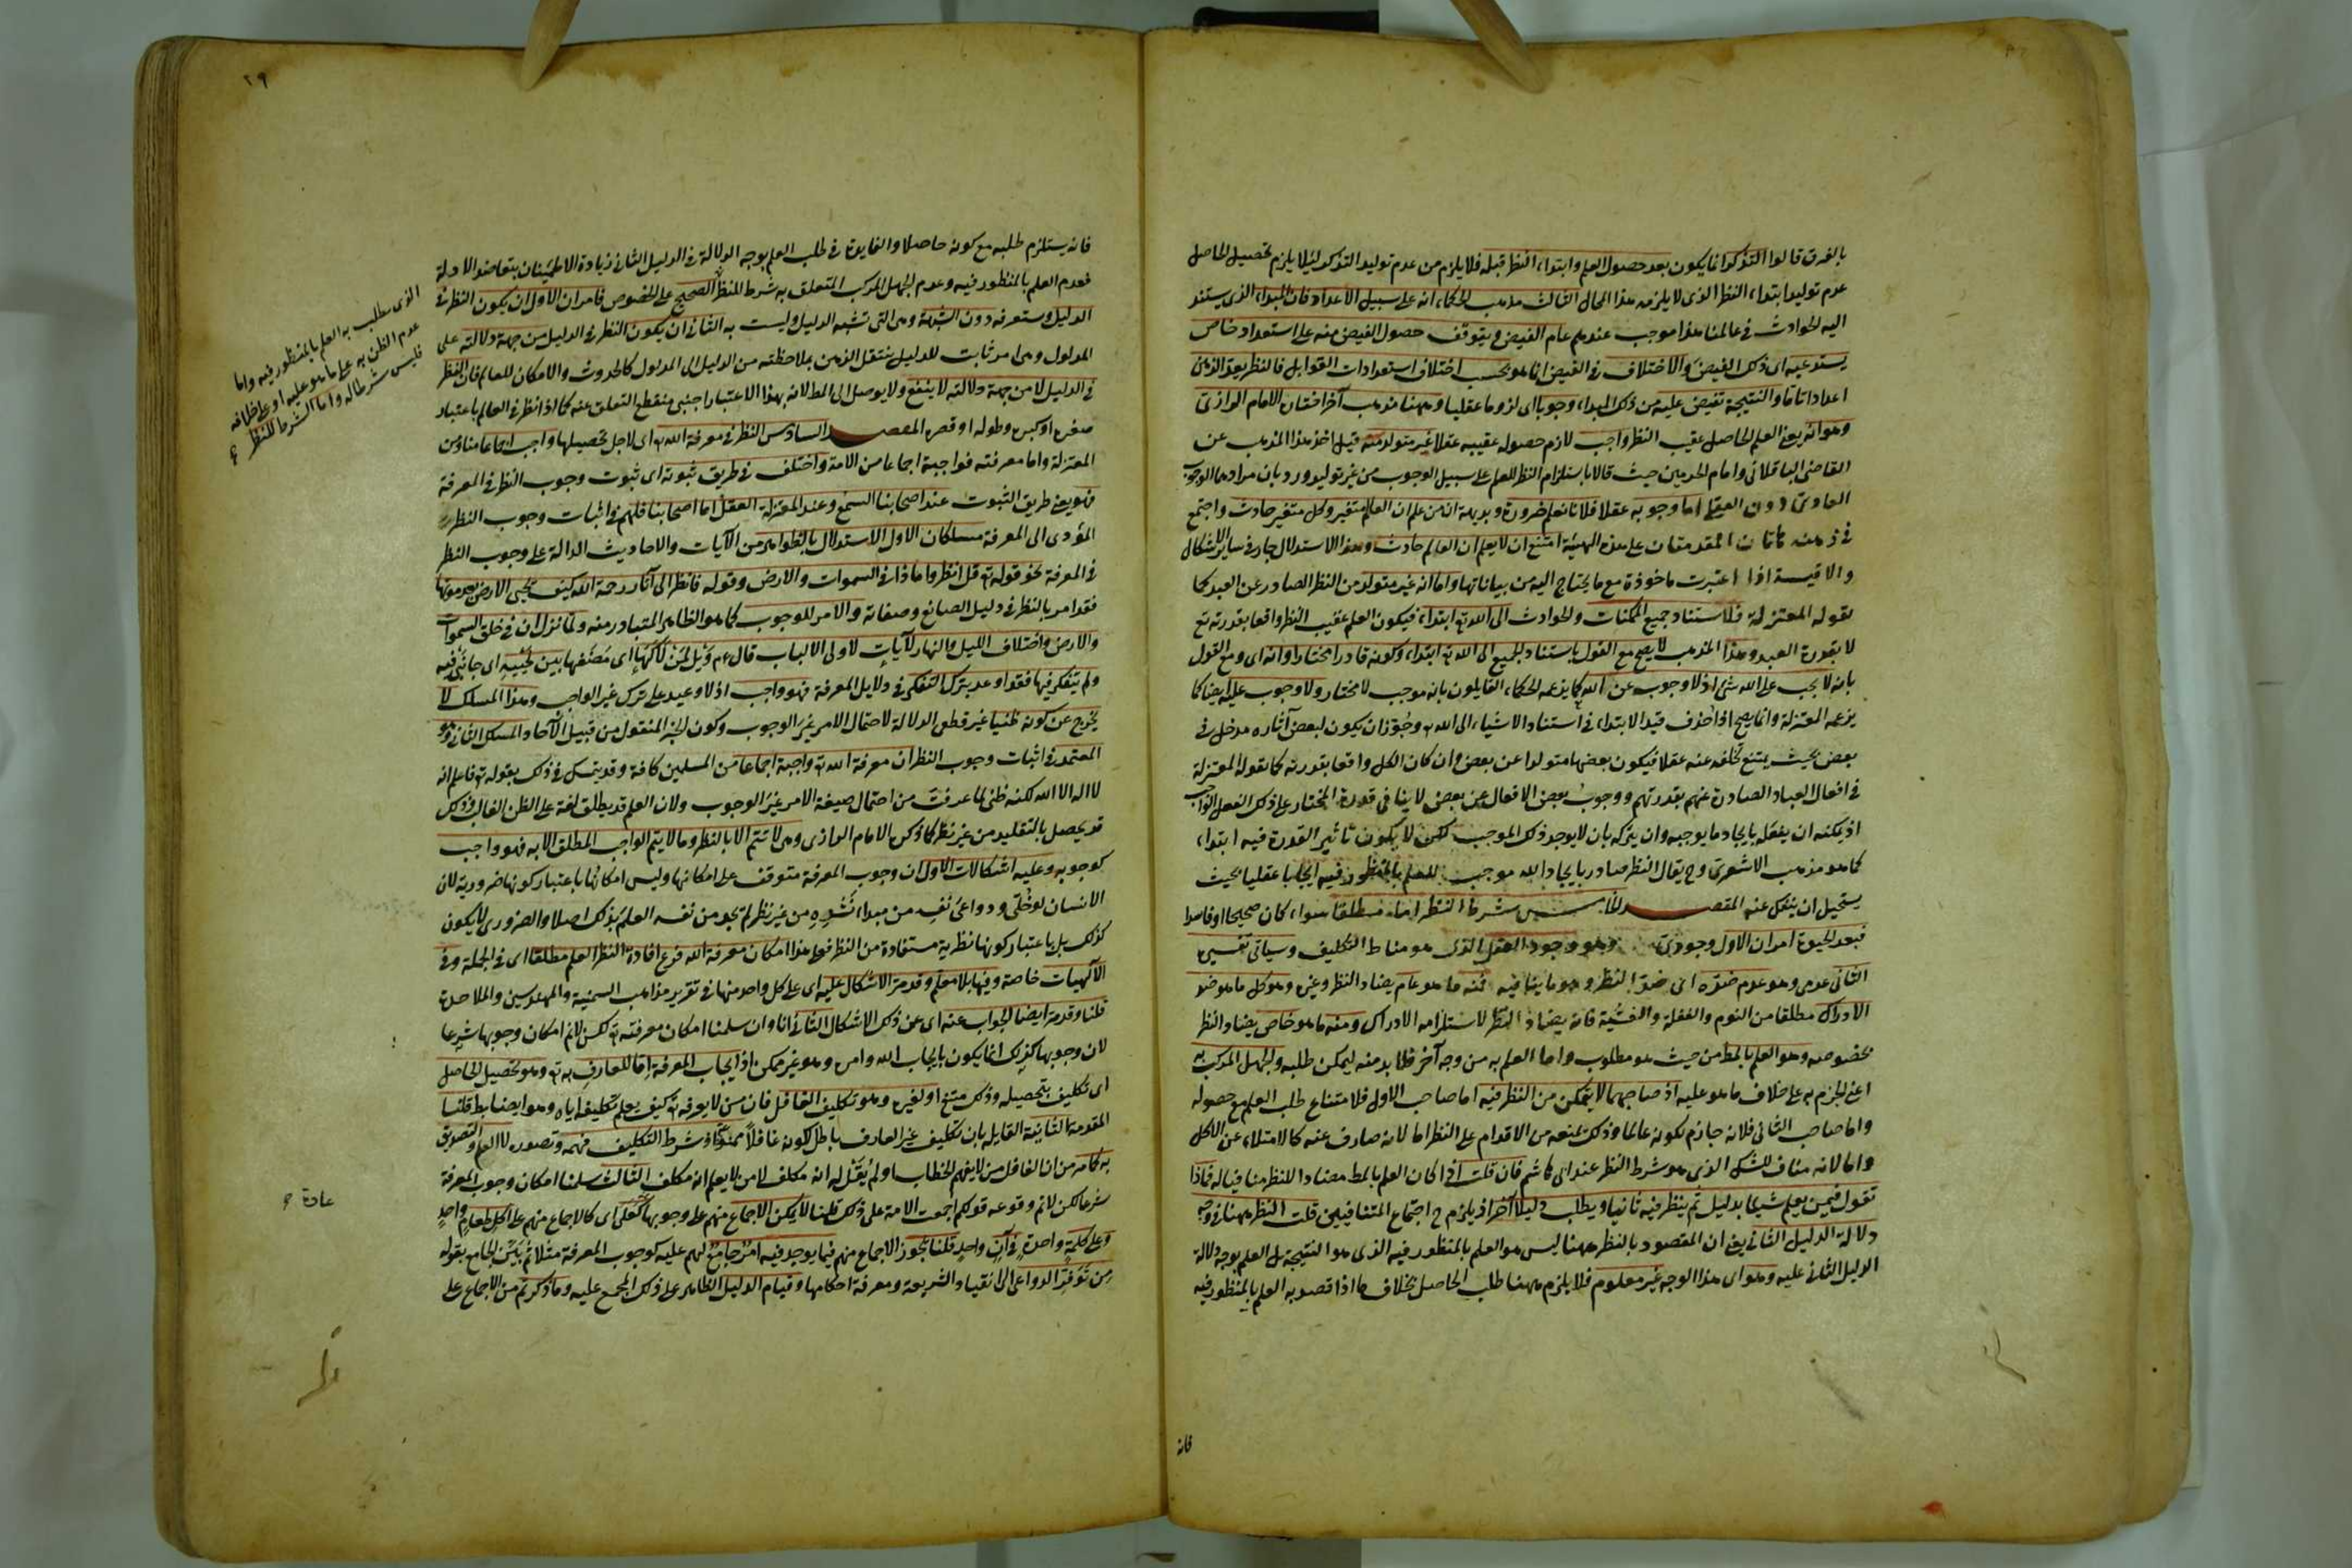 بالفرق قالوا التذكر انما يكون بعد حصول العلم وابتداء النظر قبله فلا يلزم من عدم توليد التذكر لئلا يلزم تحصيل الحاصل
عدم توليد ابتداء النظر الذى لا يلزمه هذا المحال الثالث مذهب الحكماء انه على سبيل الاعداد فان المبداء الذى يستند
اليه الحوادث فى عالمنا هذا موجب عندهم عام الفيض ويتوقف حصول الفيض منه على استعداد خاص
يستدعيه اى ذلك الفيض والاختلاف فى الفيض انما هو بحسب اختلاف استعدادات القوابل فالنظر يعد الذهن
اعدادا تاما والنتيجة تفيض عليه من ذلك المبداء وجوبا اى لزوما عقليا وههنا مذهب آخر اختان الامام الرازى
وهو انه يعنى العلم الحاصل عقيب النظر واجب لازم حصوله عقيبه عقلا غير متولد منه قيل اخذ هذا المذهب عن
القاضى الباقلانى وامام الحرمين حيث قالا باستلزام النظر للعلم على سبيل الوجوب من غير توليد ورد بان مرادهما الوجوب
العادى دون العقلى اما وجوبه عقلا فلانا نعلم ضرورة وبديهة ان من علم ان العالم متغير وكل متغير حادث واجتمع
فى ذهنه هاتان المقدمتان على هذه الهيئة امتنع ان لا يعلم ان العالم حادث وهذا الاستدلال جار فى ساير الاشكال
والاقيسة اذا اعتبرت ماخوذة مع ما يحتاج اليه من بياناتها واما انه غير متولد من النظر الصادر عن العبد كما
تقوله المعتزلة فلاستناد جميع الممكنات والحوادث الى الله تع ابتداء فيكون العلم عقيب النظر واقعا بقدرته تع
لا بقدرة العبد وهذا المذهب لا يصح مع القول باستناد الجميع الى الله تع ابتداء وكونه قادرا مختارا وانه اى ومع القول
بانه لا يجب على الله شئ اذ لا وجوب عن الله كما يزعمه الحكماء القايلون بانه موجب لا مختار ولا وجوب عليه ايضا كما
يزعمه المعتزلة وانما يصح اذا حذف قيد الابتداء فى استناد الاشياء الى الله تع وجوز ان يكون لبعض آثاره مدخل فى
بعض بحيث يمتنع تخلفه عنه عقلا فيكون بعضها متولدا عن بعض وان كان الكل واقعا بقدرته كما تقوله المعتزلة
فى افعال العباد الصادرة عنهم بقدرتهم ووجوب بعض الافعال عن بعض لا ينافى قدرة المختار على ذلك الفعل الواجب
اذ يمكنه ان يفعله بايجاد ما يوجبه وان يتركه بان لا يوجد ذلك الموجب لكن لا يكون تاثير القدرة فيه ابتداء
كما هو مذهب الاشعرى وح يقال النظر صادر بايجاد الله موجب للعلم بالمنظور فيه ايجابا عقليا بحيث
يستحيل ان ينفك عنه المقصد الخامس شرط النظر اما مطلقا سواء كان صحيحا او فاسدا
فبعد الحيوة امران الاول وجودى وهو وجود العقل الذى هو مناط التكليف وسياتى تفسيره
الثانى عدمى وهو عدم ضده اى ضد النظر وهو ما ينافيه فمنه ما هو عام يضاد النظر وغيره وهو كل ما هو ضد
الادراك مطلقا من النوم والغفلة والغشية فانه يضاد النظر لاستلزامه الادراك ومنه ما هو خاص يضاد النظر
بخصوصه وهو العلم بالمط من حيث هو مطلوب واما العلم به من وجه آخر فلا بد منه ليمكن طلبه والجهل المركب به
اعنى الجزم به على خلاف ما هو عليه اذ صاحبهما لا يتمكن من النظر فيه اما صاحب الاول فلامتناع طلب العلم مع حصوله
واما صاحب الثانى فلانه جازم بكونه عالما وذلك يمنعه من الاقدام على النظر اما لانه صارف عنه كالامتلاء عن الاكل
واما لانه مناف للشك الذى هو شرط النظر عند ابى هاشم فان قلت اذا كان العلم بالمط مضادا للنظر منافيا له فماذا
تقول فيمن يعلم شيئا بدليل ثم ينظر فيه ثانيا ويطلب دليلا آخر اذ يلزم ح اجتماع المتنافيين قلت النظر ههنا فى وجه
دلالة الدليل الثانى يعنى ان المقصود بالنظر ههنا ليس هو العلم بالمنظور فيه الذى هو النتيجة بل العلم بوجه دلالة
الدليل الثانى عليه وهو اى هذا الوجه غير معلوم فلا يلزم ههنا طلب الحاصل بخلاف ما اذا قصد به العلم بالمنظور فيه
فانه
٢٩
فانه يستلزم طلبه مع كونه حاصلا والفايدة فى طلب العلم بوجه الدلالة فى الدليل الثانى زيادة الاطمينان بتعاضد الادلة
فعدم العلم بالمنظور فيه وعدم الجهل المركب المتعلق به شرط للنظر الصحيح على الخصوص فامران الاول ان يكون النظر فى
الدليل وستعرفه دون الشبهة وهى التى تشبه الدليل وليست به الثانى ان يكون النظر فى الدليل من جهة دلالته على
المدلول وهى امر ثابت للدليل ينتقل الذهن بملاحظته من الدليل الى المدلول كالحدوث والامكان للعالم فان النظر
فى الدليل لا من جهة دلالته لا ينفع ولا يوصل الى المط لانه بهذا الاعتبار اجنبى منقطع التعلق عنه كما اذا نظر فى العالم باعتبار
صغره او كبره وطوله او قصره المقصد السادس النظر فى معرفة الله تع اى لاجل تحصيلها واجب اجماعا منا ومن
المعتزلة واما معرفته فواجبة اجماعا من الامة واختلف فى طريق ثبوته اى ثبوت وجوب النظر فى المعرفة
فهو يعنى طريق الثبوت عند اصحابنا السمع وعند المعتزلة العقل اما اصحابنا فلهم فى اثبات وجوب النظر
المؤدى الى المعرفة مسلكان الاول الاستدلال بالظواهر من الآيات والاحاديث الدالة على وجوب النظر
فى المعرفة نحو قوله تع قل انظروا ماذا فى السموات والارض وقوله فانظر الى آثار رحمة الله كيف يحيى الارض بعد موتها
فقد امر بالنظر فى دليل الصانع وصفاته والامر للوجوب كما هو الظاهر المتبادر منه ولما نزل ان فى خلق السموات
والارض واختلاف الليل والنهار لآيات لاولى الالباب قال ءم ويل لمن لاكها اى مضغها بين لحييه اى جانبى فيه
ولم يتفكر فيها فقد اوعد بترك التفكر فى دلايل المعرفة فهو واجب اذ لا وعيد على ترك غير الواجب وهذا المسلك لا
يخرج عن كونه ظنيا غير قطعى الدلالة لاحتمال الامر غير الوجوب وكون الخبر المنقول من قبيل الآحاد المسلك الثانى وهو
المعتمد فى اثبات وجوب النظر ان معرفة الله تع واجبة اجماعا من المسلمين كافة وقد يتمسك فى ذلك بقوله تع فاعلم انه
لا اله الا الله لكنه ظنى لما عرفت من احتمال صيغة الامر غير الوجوب ولان العلم قد يطلق لغة على الظن الغالب وذلك
قد يحصل بالتقليد من غير نظر كما ذكره الامام الرازى وهى لا تتم الا بالنظر وما لا يتم الواجب المطلق الا به فهو واجب
كوجوبه وعليه اشكالات الاول ان وجوب المعرفة متوقف على امكانها وليس امكانها باعتبار كونها ضرورية لان
الانسان لو خلى ودواعى نفسه من مبداء نشوه من غير نظر لم يجد من نفسه العلم بذلك اصلا والضرورى لا يكون
كذلك بل باعتبار كونها نظرية مستفادة من النظر فعلى هذا امكان معرفة الله فرع افادة النظر العلم مطلقا اى فى الجملة وفى
الآلهيات خاصة وفيها بلا معلم وقد مر الاشكال عليه اى على كل واحد منها فى تقرير مذاهب السمنية والمهندسين والملاحدة
قلنا وقد مر ايضا الجواب عنه اى عن ذلك الاشكال الثانى انا وان سلمنا امكان معرفته تع لكن لانم امكان وجوبها شرعا
لان وجوبها كذلك انما يكون بايجاب الله وامره وهو غير ممكن اذ ايجاب المعرفة اما للعارف به تع وهو تحصيل الحاصل
اى تكليف بتحصيله وذلك ممتنع او لغيره وهو تكليف الغافل فان من لا يعرفه تع كيف يعلم تكليفه اياه وهو ايضا بط قلنا
المقدمة الثانية القايلة بان تكليف غير العارف باطل لكونه غافلا ممنوعة اذ شرط التكليف فهمه وتصوره لا العلم والتصديق
به كما مر من ان الغافل من لا يفهم الخطاب او لم يقل له انه مكلف لا من لا يعلم انه مكلف الثالث سلمنا امكان وجوب المعرفة
شرعا لكن لانم وقوعه قولكم اجمعت الامة على ذلك قلنا لا يمكن الاجماع منهم على وجوبها كعلى اى كالاجماع منهم على اكل طعام واحد
وعلى كلمة واحدة فى آن واحد قلنا يجوز الاجماع منهم فيما يوجد فيه امر جامع لهم عليه كوجوب المعرفة مثلا ثم بين الجامع بقوله
من توفر الدواعى الى انقياد الشريعة ومعرفة احكامها وقيام الدليل الظاهر على ذلك المجمع عليه وما ذكرتم من الاجماع على
الذى يطلب به العلم بالمنظور فيه واما
عدم الظن به على ما هو عليه او على خلافه
فليس شرطا له واما الشرط للنظر
عادة